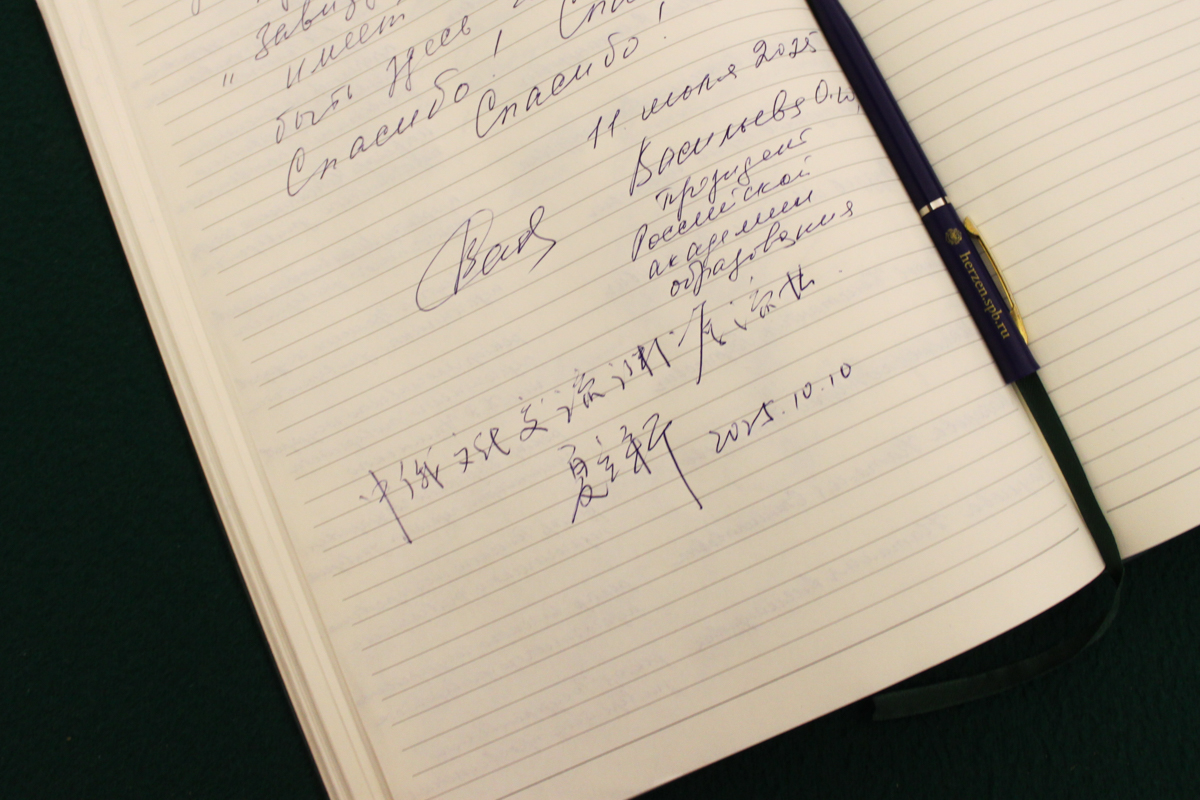 имеет
быть здесь
Спасибо!
Спасибо!
11 июля 2025
Васильева О.Ю.
президент
Российской
академии
образования
中俄文化交流
夏立新 2025.10.10
herzen.spb.ru